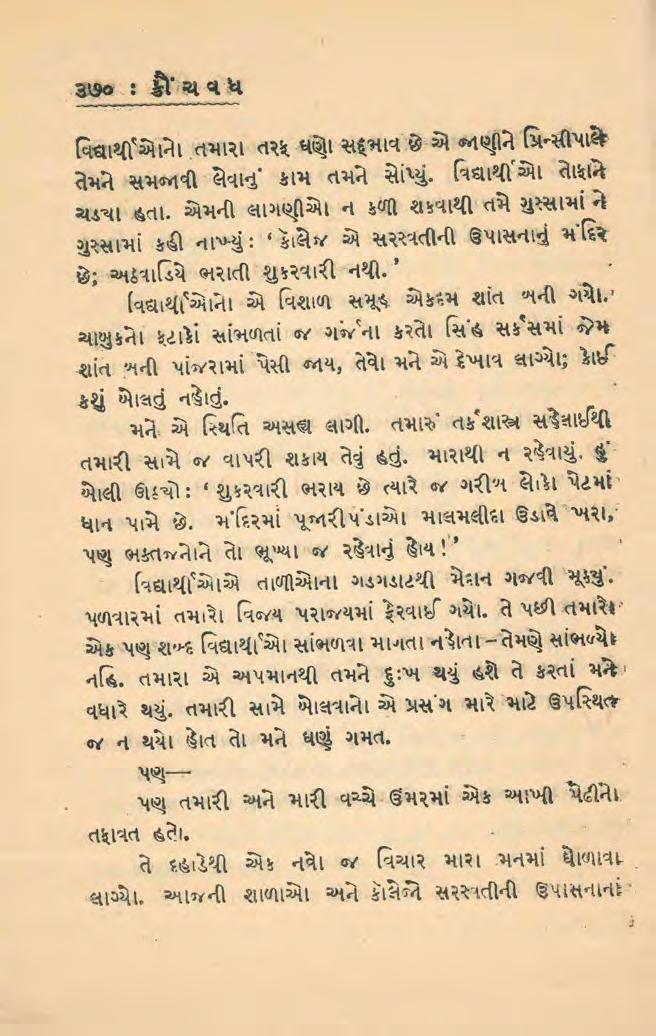 ૩૭૦ : ક્રૌંચવધ
વિદ્યાર્થીઓનો તમારા તરફ ઘણો સદ્દભાવ છે એ જાણીને પ્રિન્સીપાલે
તેમને સમજાવી લેવાનું કામ તમને સોંપ્યું. વિદ્યાર્થીઓ તોફાને
ચડ્યા હતા. એમની લાગણીઓ ન કળી શકવાથી તમે ગુસ્સામાં ને
ગુસ્સામાં કહી નાખ્યું : ‘ કૉલેજ એ સરસ્વતીની ઉપાસનાનું મંદિર
છે; અઠવાડિયે ભરાતી શુકરવારી નથી. ’
વિદ્યાર્થીઓનો એ વિશાળ સમૂહ એકદમ શાંત બની ગયો.
ચાબુકનો ફટાકો સાંભળતાં જ ગર્જના કરતો સિંહ સર્કસમાં જેમ
શાંત બની પાંજરામાં પેસી જાય, તેવો મને એ દેખાવ લાગ્યો; કોઈ
કશું બોલતું નહોતું.
મને એ સ્થિતિ અસહ્ય લાગી. તમારું તર્કશાસ્ત્ર સહેલાઈથી
તમારી સામે જ વાપરી શકાય તેવું હતું. મારાથી ન રહેવાયું. હું
બોલી ઊઠ્યો : ‘ શુકરવારી ભરાય છે ત્યારે જ ગરીબ લોકો પેટમાં
ધાન પામે છે. મંદિરમાં પૂજારીપંડાઓ માલમલીદા ઉડાવે ખરા,
પણ ભક્તજનોને તો ભૂખ્યા જ રહેવાનું હોય ! ’
વિદ્યાર્થીઓએ તાળીઓના ગડગડાટથી મેદાન ગજવી મૂક્યું.
પળવારમાં તમારો વિજય પરાજયમાં ફેરવાઈ ગયો. તે પછી તમારો
એક પણ શબ્દ વિદ્યાર્થીઓ સાંભળવા માગતા નહોતા – તેમણે સાંભળ્યો
નહિ. તમારા એ અપમાનથી તમને દુઃખ થયું હશે તે કરતાં મને
વધારે થયું. તમારી સામે બોલવાનો એ પ્રસંગ મારે માટે ઉપસ્થિત
જ ન થયો હોત તો મને ઘણું ગમત.
પણ—
પણ તમારી અને મારી વચ્ચે ઉંમરમાં એક આખી પેઢીનો
તફાવત હતો.
તે દહાડેથી એક નવો જ વિચાર મારા મનમાં ઘોળાવા
લાગ્યો. આજની શાળાઓ અને કૉલેજો સરસ્વતીની ઉપાસનાનાં